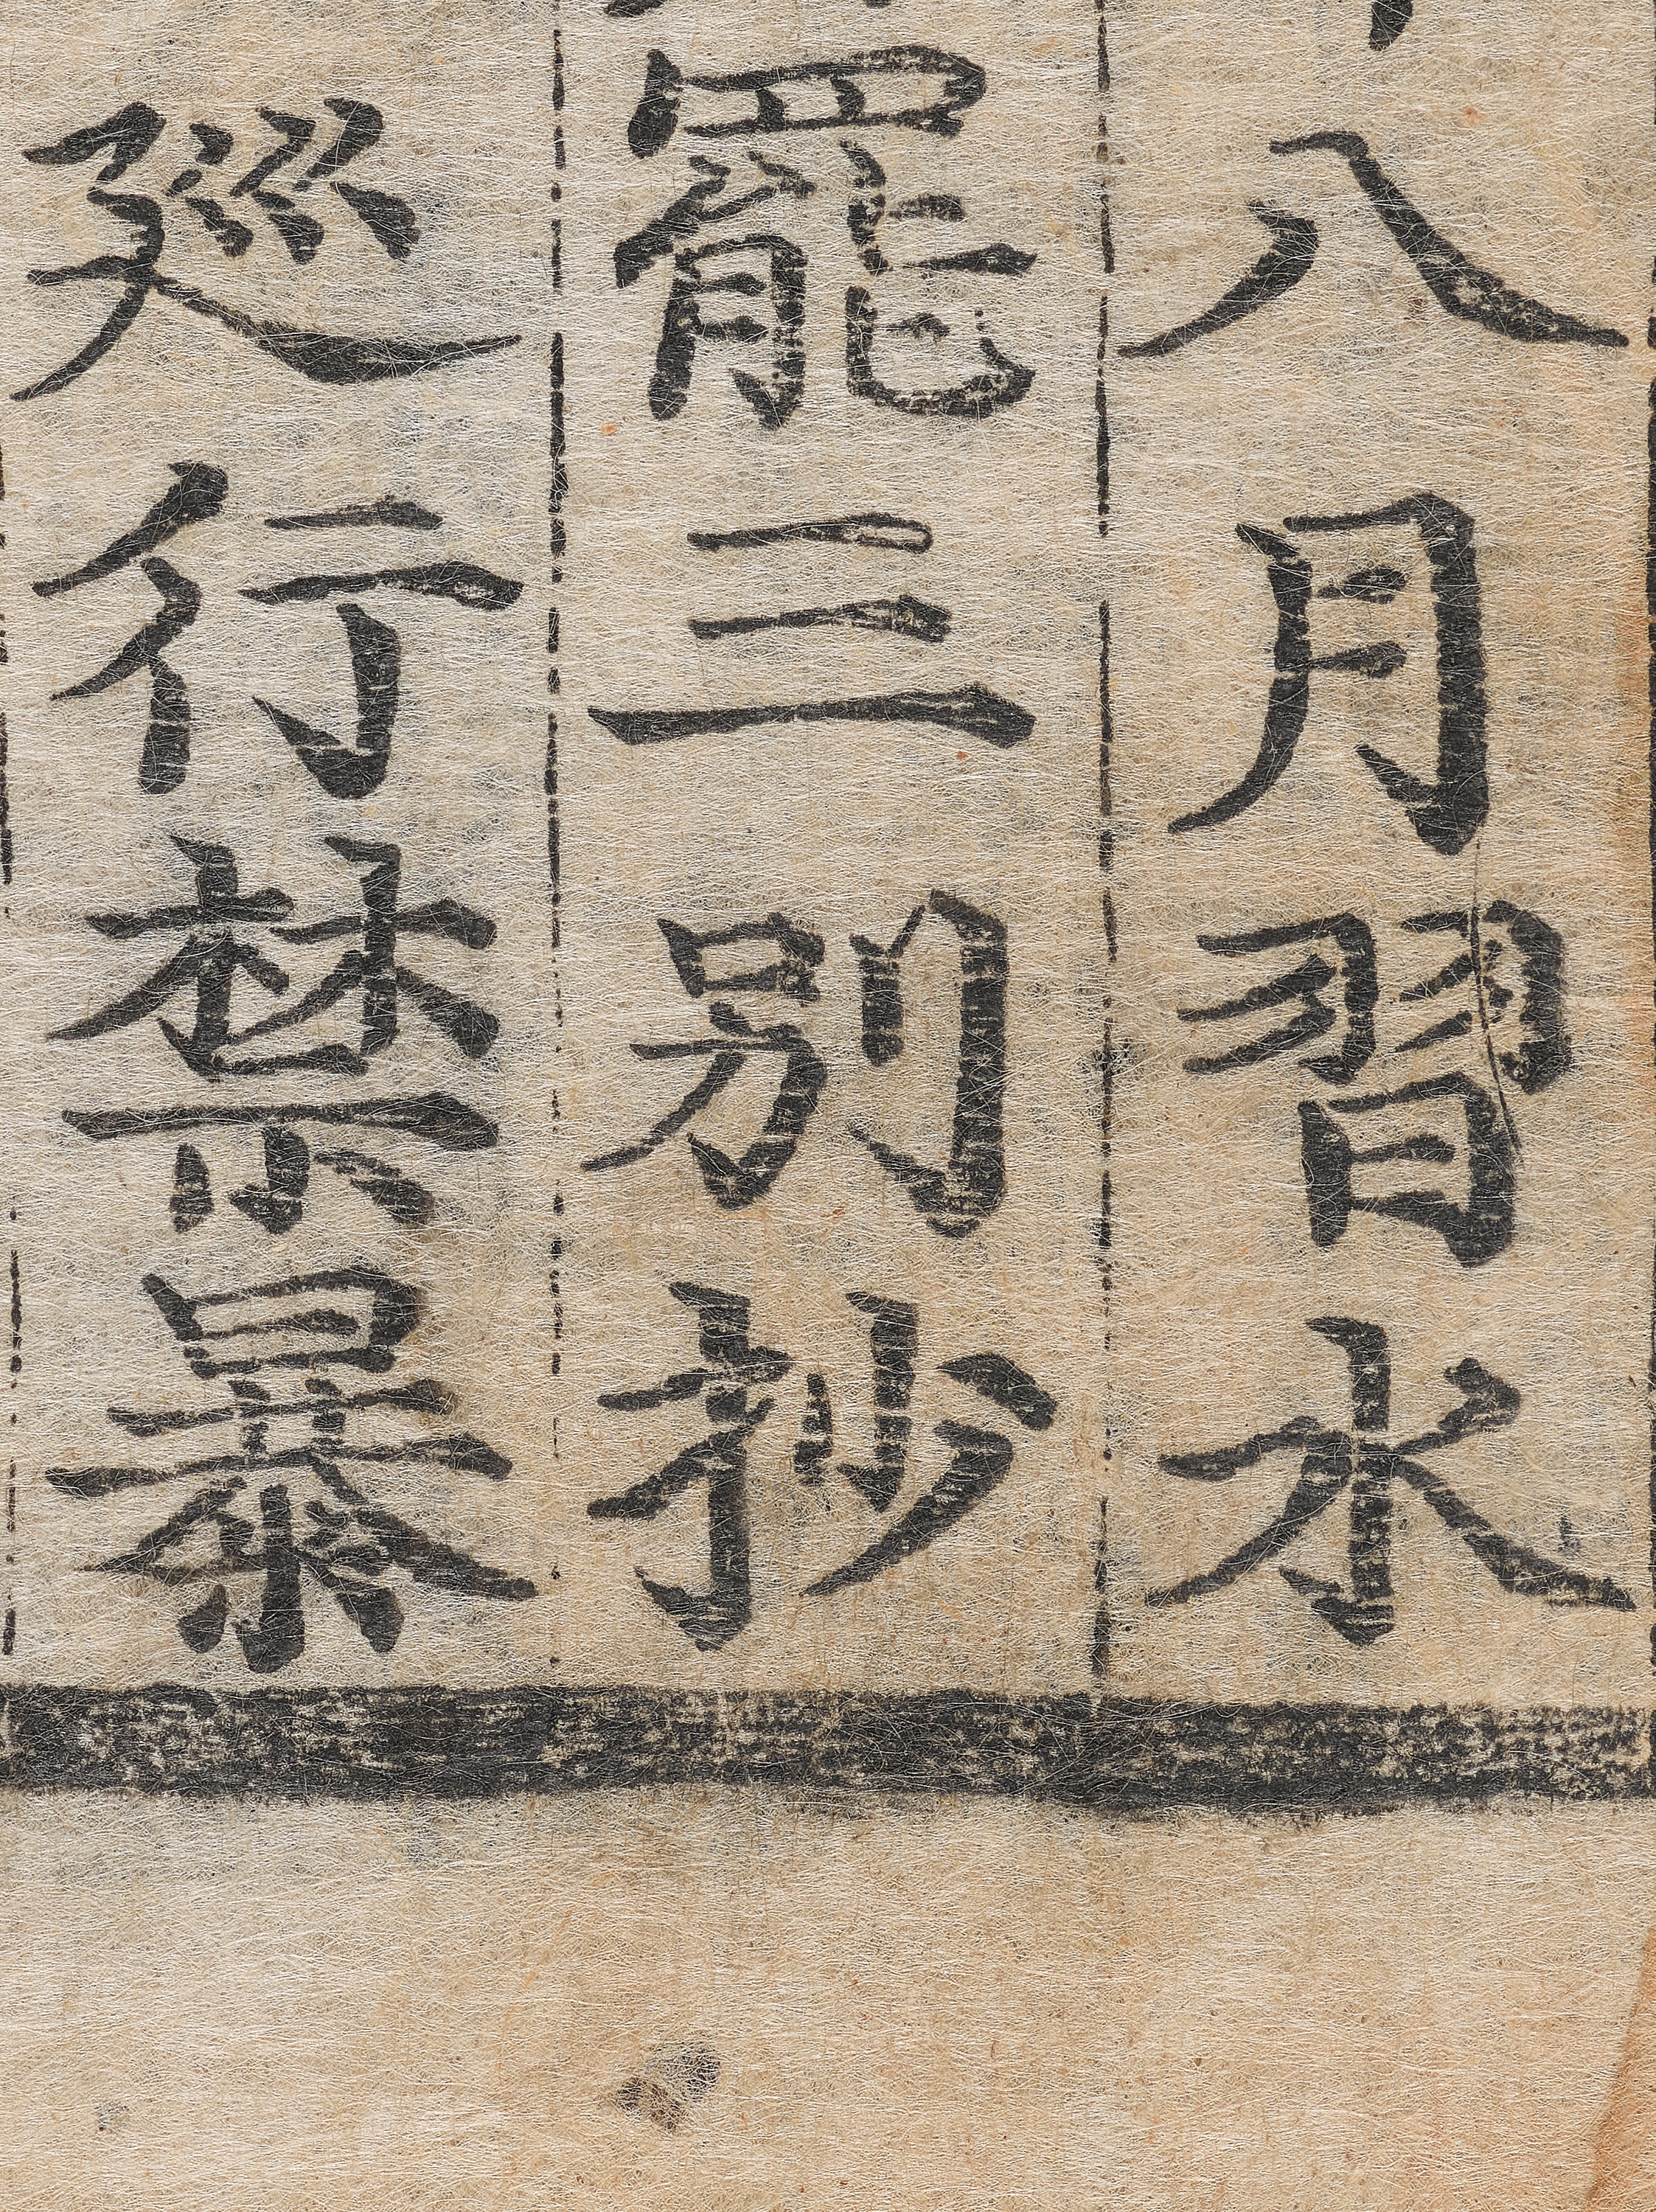 八月習水
罷三別抄
廵行禁暴